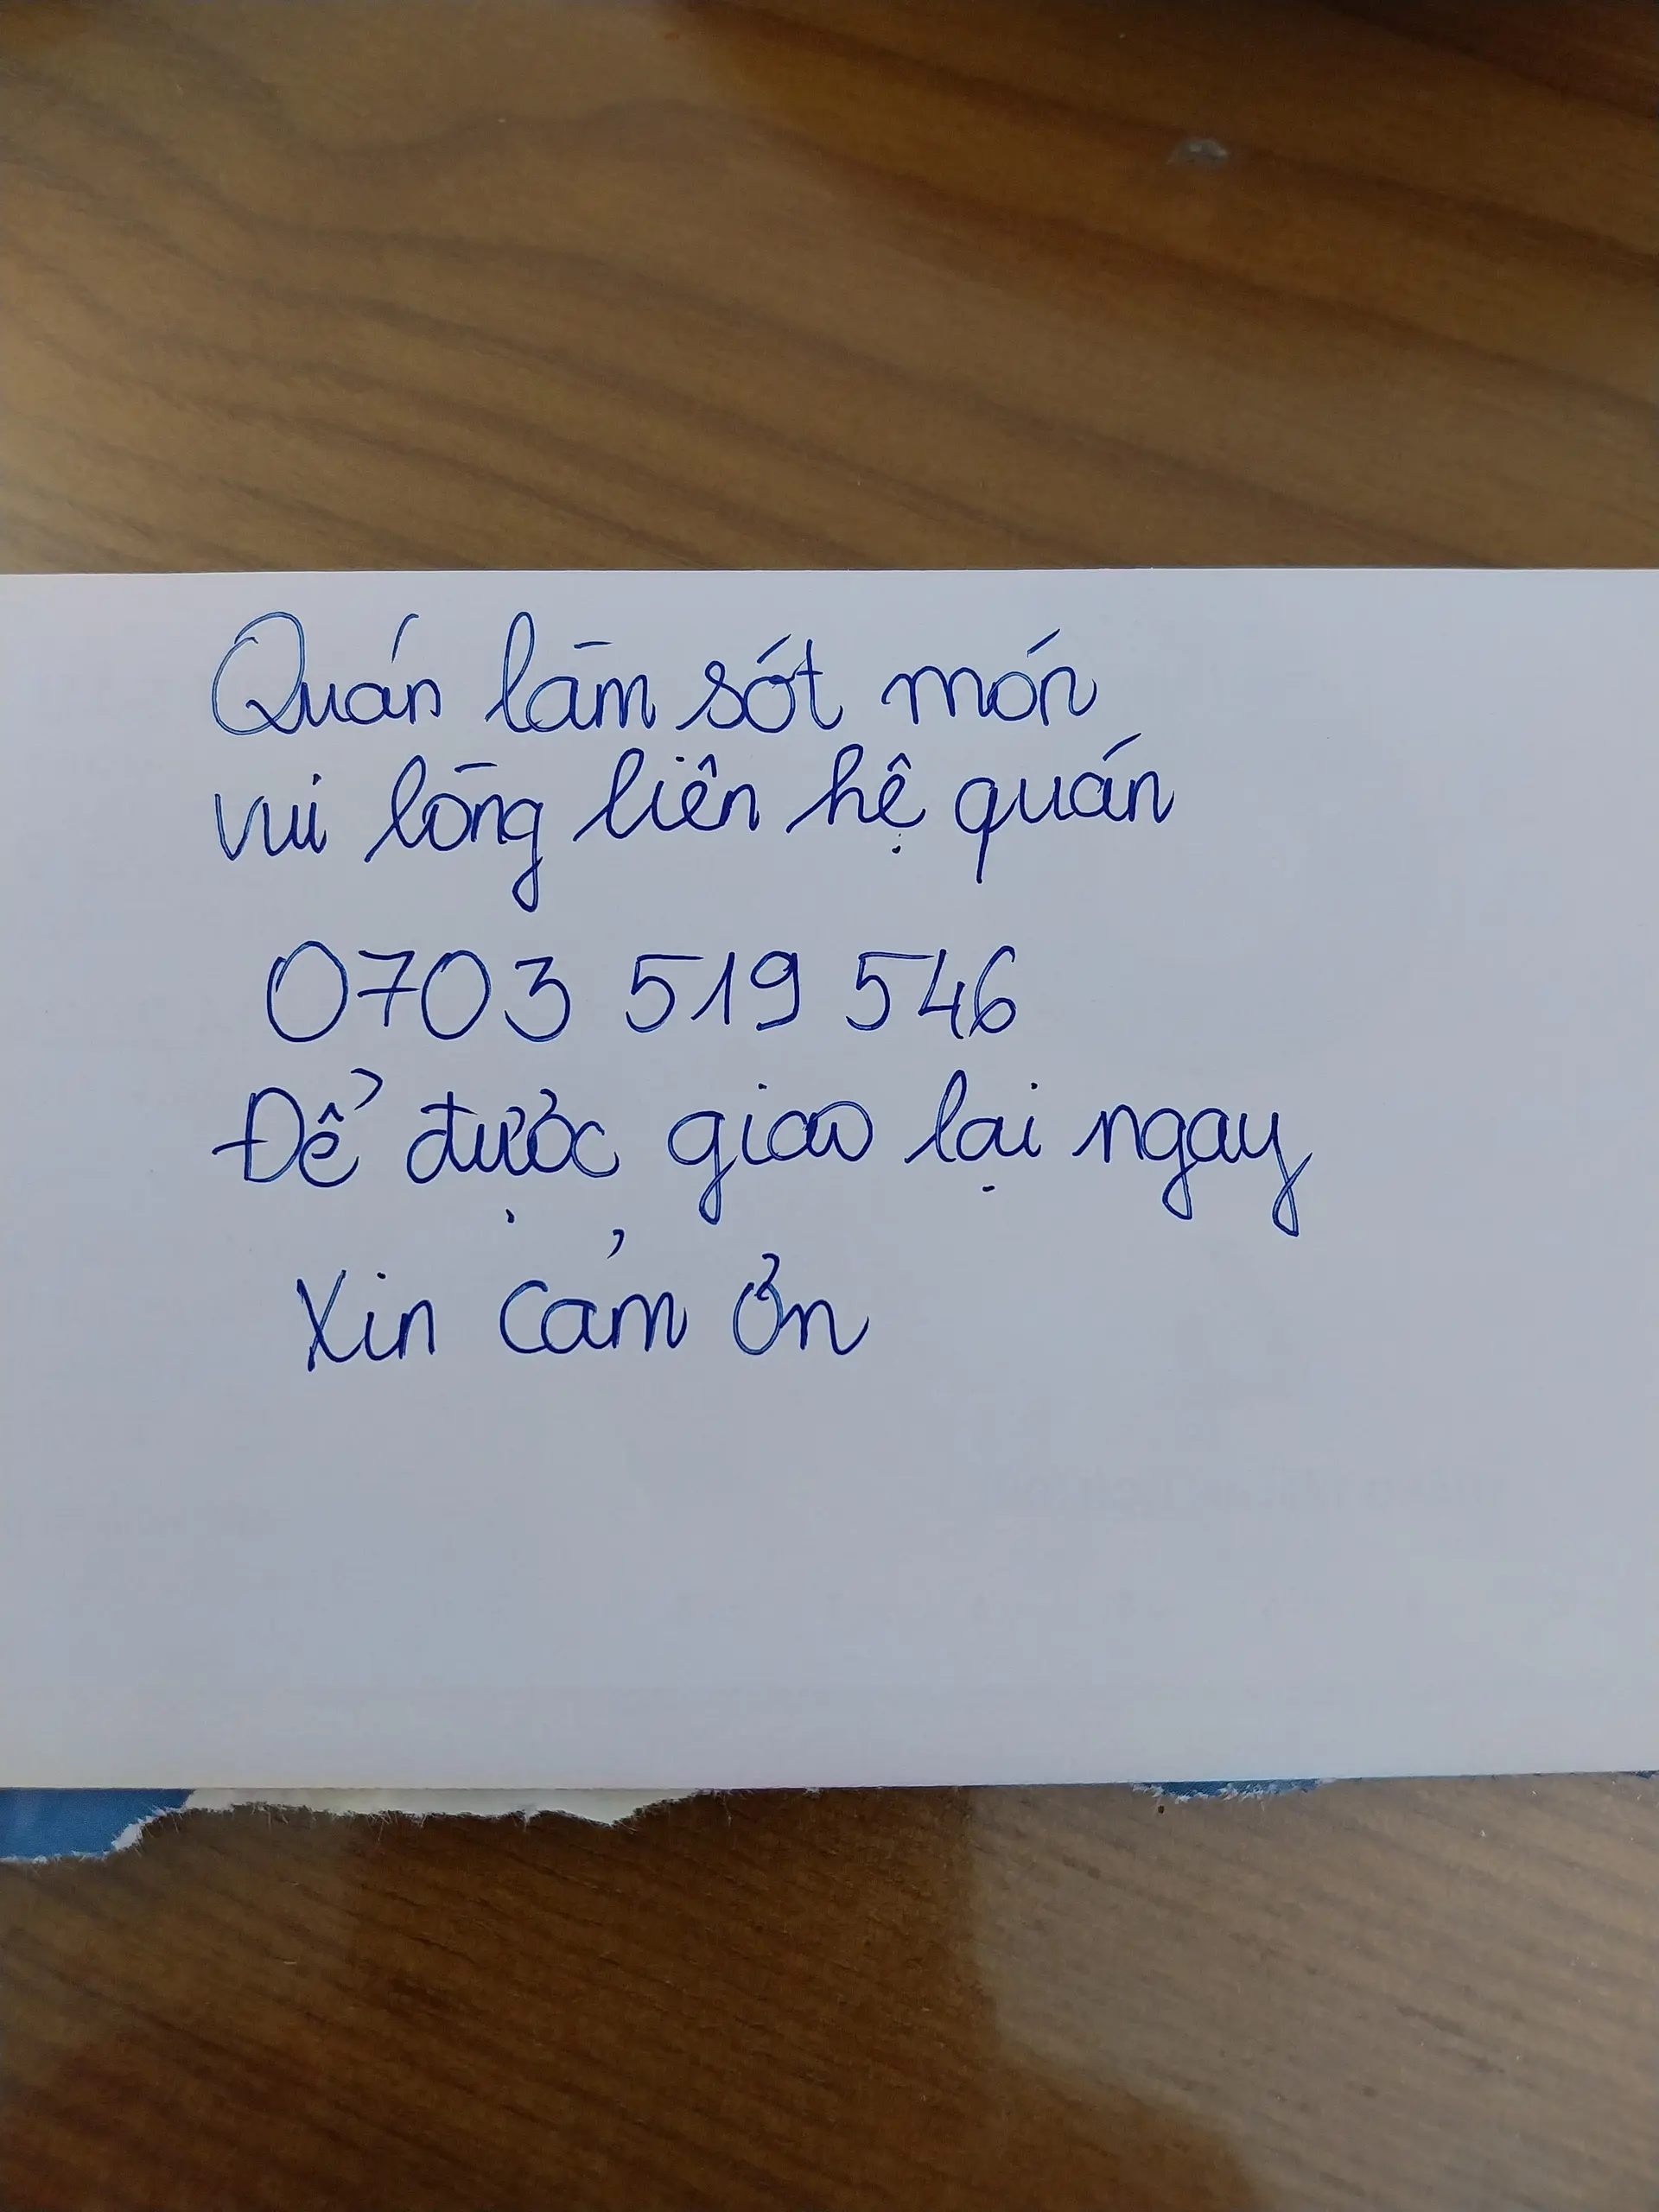 Quán làm sót món
vui lòng liên hệ quán
0703 519 546
Để được giao lại ngay
Xin cảm ơn